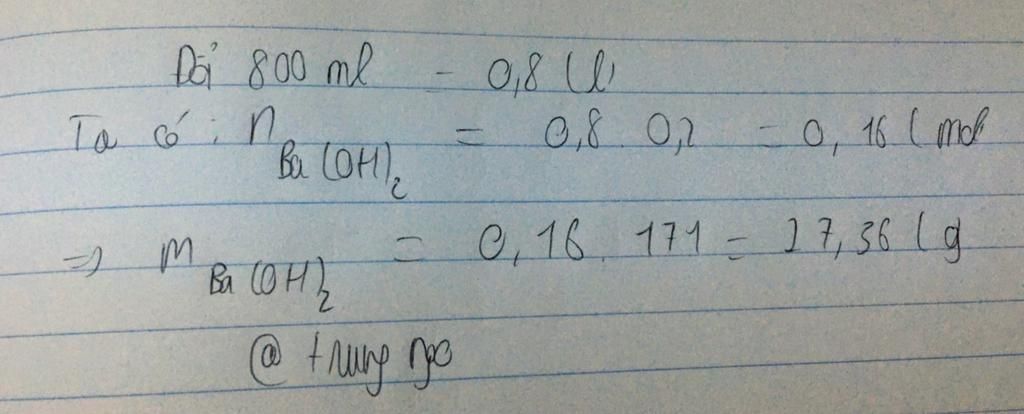 Đổi 800 ml = 0,8 (l)
Ta có : n Ba(OH)2 = 0,8 . 0,2 = 0,16 (mol
=> m Ba(OH)2 = 0,16 . 171 = 27,36 (g
@ trung ngo